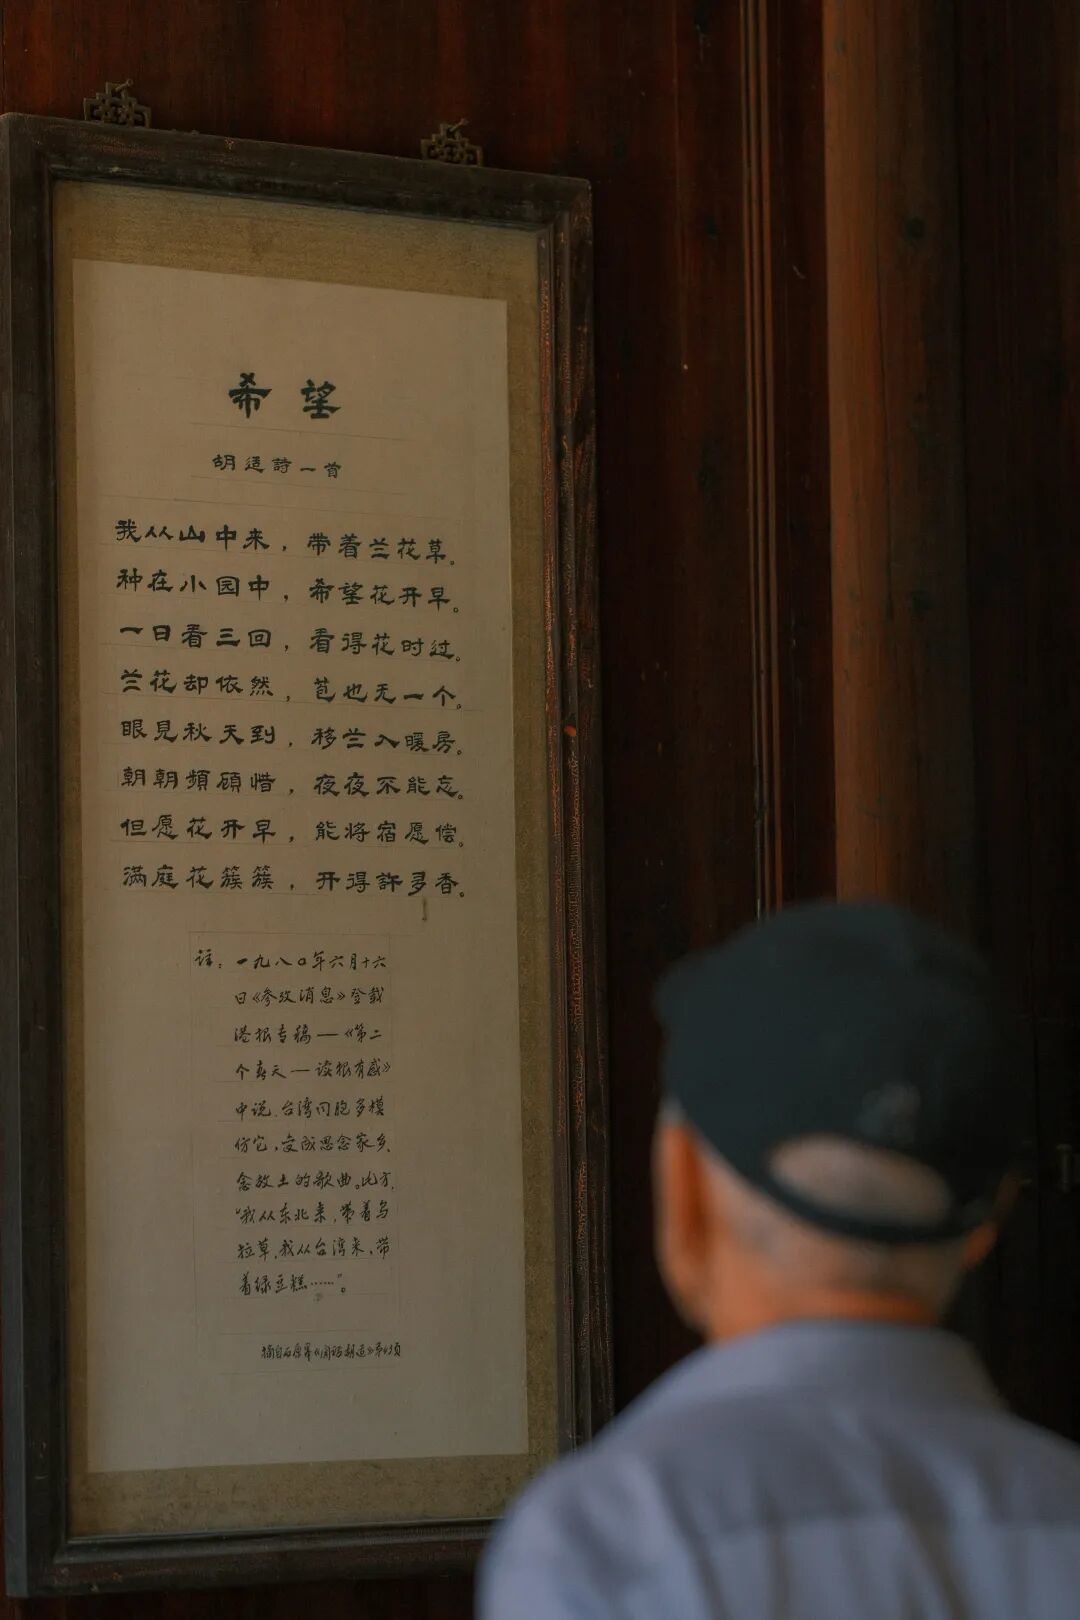 希望
胡适詩一首
我从山中来，带着兰花草。
种在小园中，希望花开早。
一日看三回，看得花时过。
兰花却依然，苞也无一个。
眼見秋天到，移兰入暖房。
朝朝頻顾惜，夜夜不能忘。
但愿花开早，能将宿愿偿。
满庭花簇簇，开得許多香。
注：一九八〇年六月十六
日《参攷消息》登载
港报专稿—《第二
个春天—读报有感》
中说，台湾同胞多模
仿它，变成思念家乡、
念故土的歌曲。比方，
“我从东北来，带着乌
拉草，我从台湾来，带
着绿豆糕……”。
摘自石原皋《闲话胡适》第43页